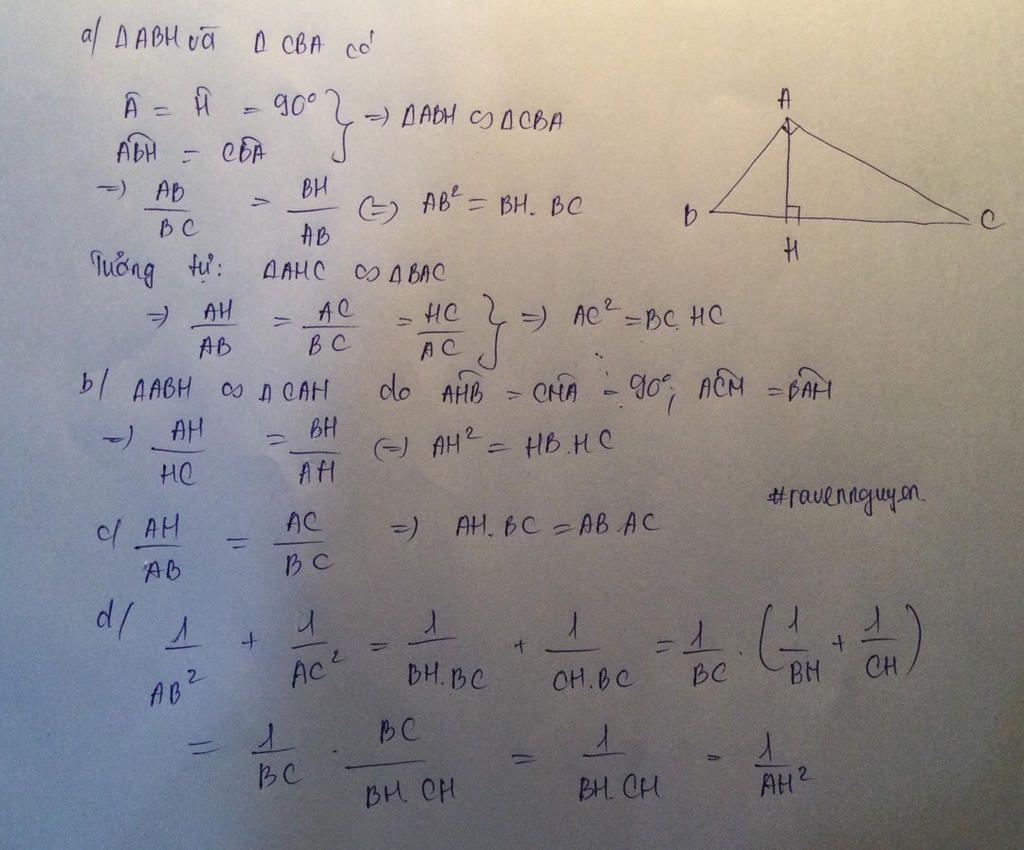 a/ ΔABH và Δ CBA có
Â = Ĥ = 90° } => ΔABH ∽ ΔCBA
ABH^ = CBA^
=> AB/BC = BH/AB <=> AB² = BH. BC
Tương tự: ΔAHC ∽ ΔBAC
=> AH/AB = AC/BC = HC/AC } => AC² = BC. HC
b/ ΔABH ∽ ΔCAH do AHB^ = CHA^ = 90°; ACH^ = BAH^
=> AH/HC = BH/AH <=> AH² = HB.HC
#ravennguyen.
c/ AH/AB = AC/BC => AH. BC = AB.AC
d/ 1/AB² + 1/AC² = 1/BH.BC + 1/CH.BC = 1/BC . (1/BH + 1/CH)
= 1/BC . BC/BH.CH = 1/BH.CH = 1/AH²
A
B
H
C